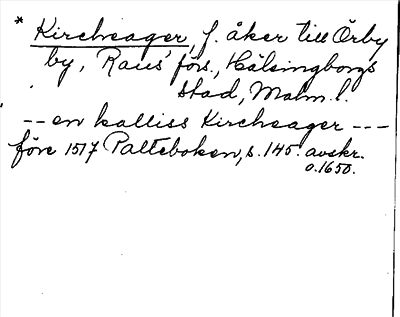 * Kirchsager, f. åker till Örby
by, Raus' förs., Hälsingborgs
stad, Malm. l.
-- en kalliss Kirchsager ---
före 1517 Palteboken, s. 145. avskr.
o. 1650.